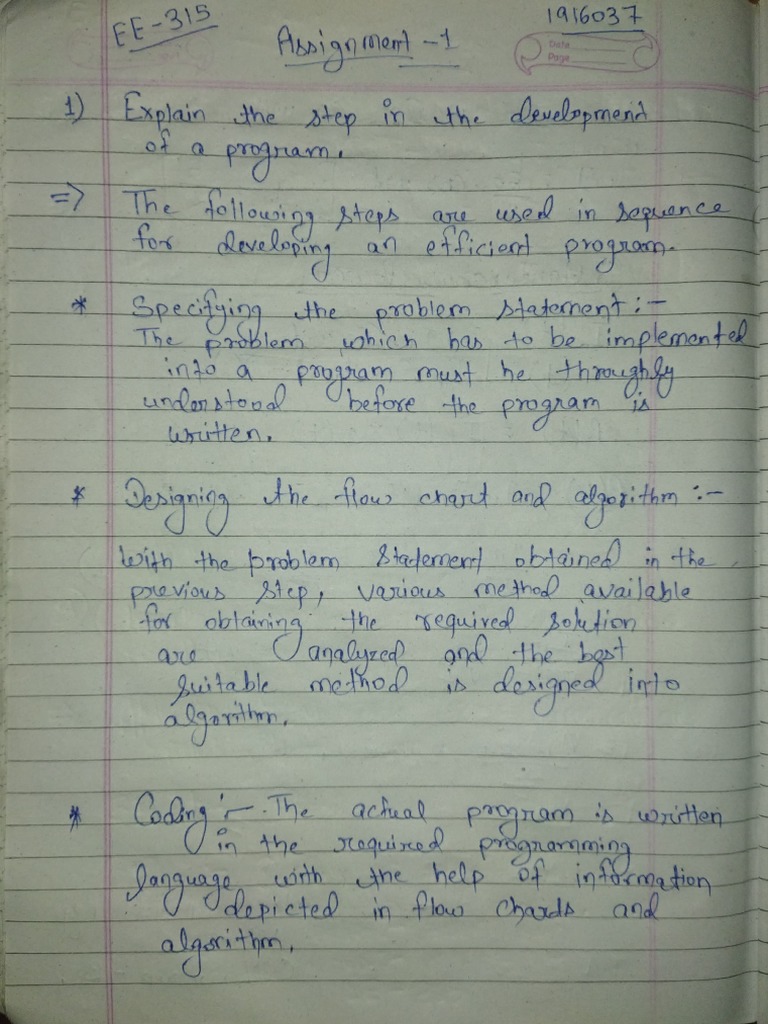 EE-315
1916037
Assignment-1
Date
Page
1) Explain the step in the development
of a program.
=> The following steps are used in sequence
for developing an efficient program.
* Specifying the problem statement:-
The problem which has to be implemented
into a program must be throughly
understood before the program is
written.
* Designing the flow chart and algorithm:-
With the problem statement obtained in the
previous step, various method available
for obtaining the required solution
are analyzed and the best
suitable method is designed into
algorithm.
* Coding:- The actual program is written
in the required programming
language with the help of information
depicted in flow charts and
algorithm.